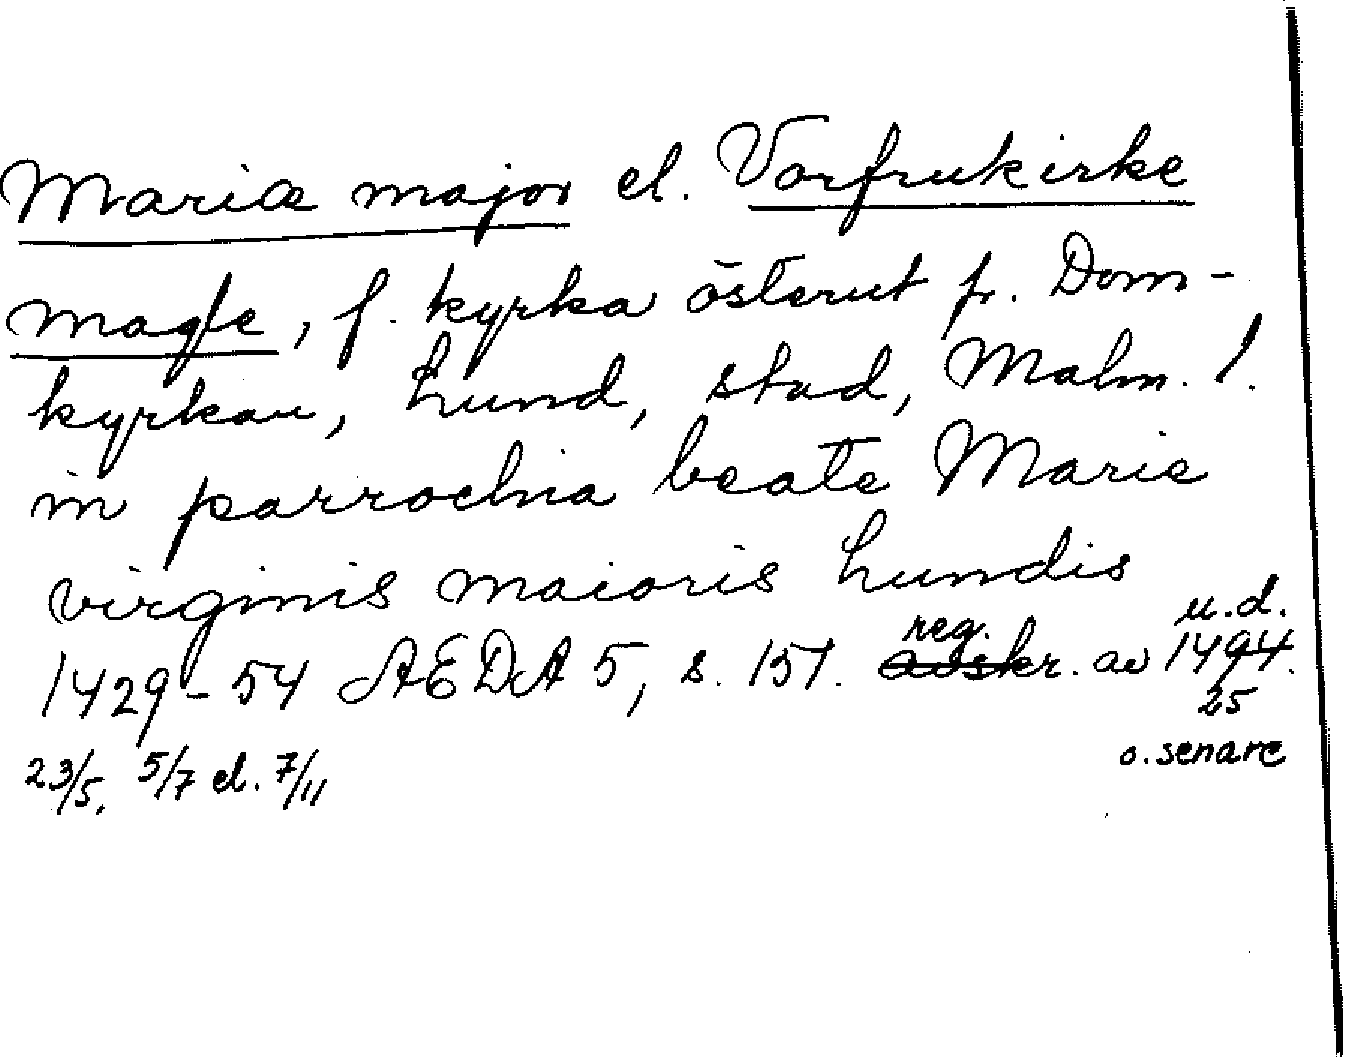 Mariæ major el. Vorfrukirke
magle, f. kyrka österut fr. Dom-
kyrkan, Lund, stad, Malm. l.
in parrochia beate Marie
virginis maioris Lundis
u.d.
reg.
1429-54 AEDA 5, s. 151. avskr. av 1494.
25
23/5, 5/7 el. 7/11 o. senare